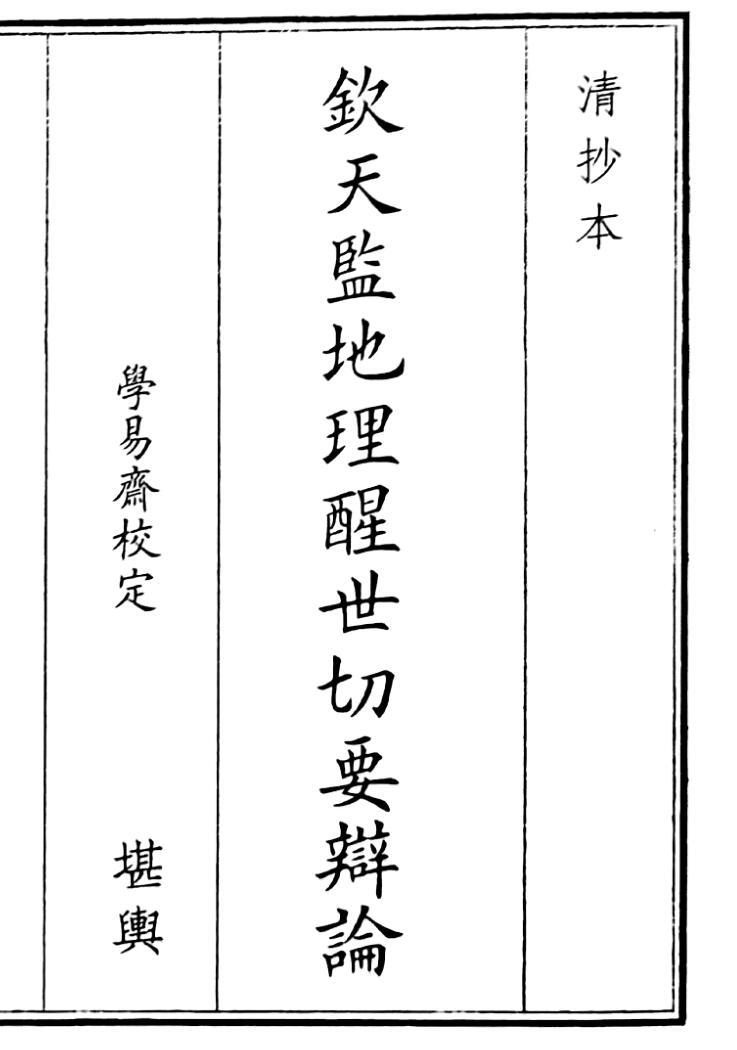 清抄本
欽天監地理醒世切要辯論
學易齋校定
堪輿